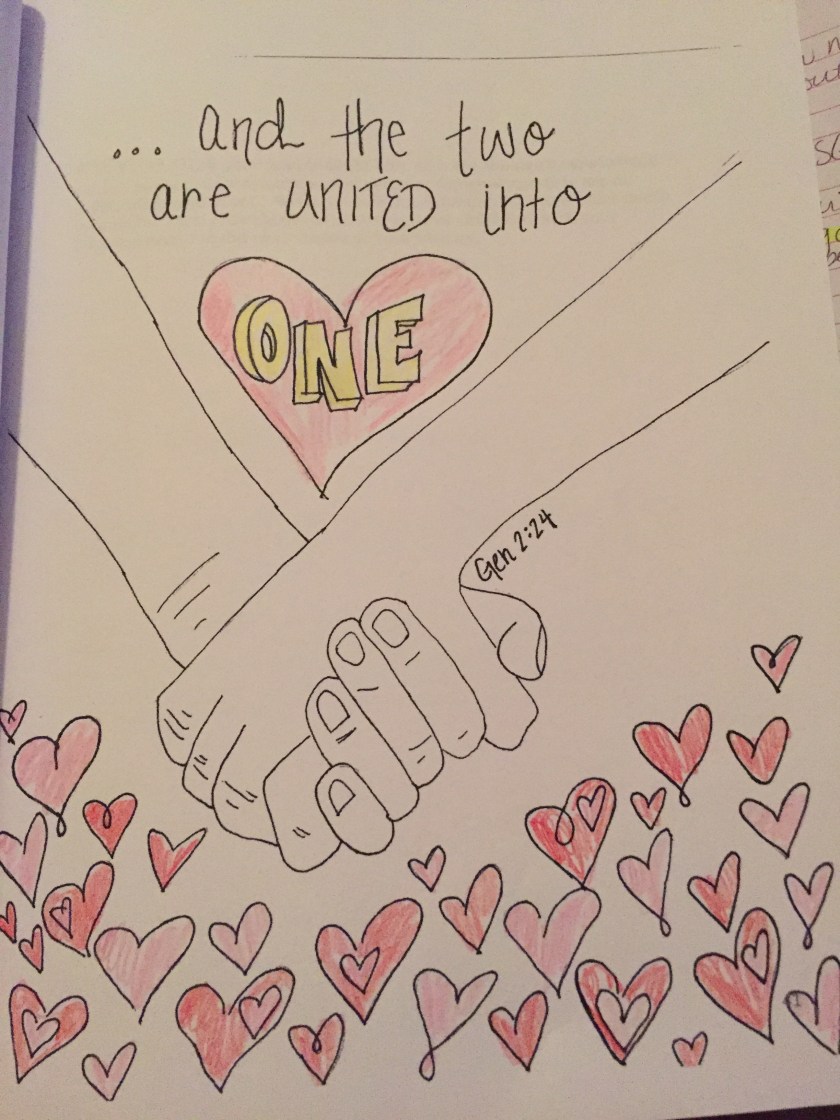 ... and the two
are UNITED into
ONE
Gen 2:24